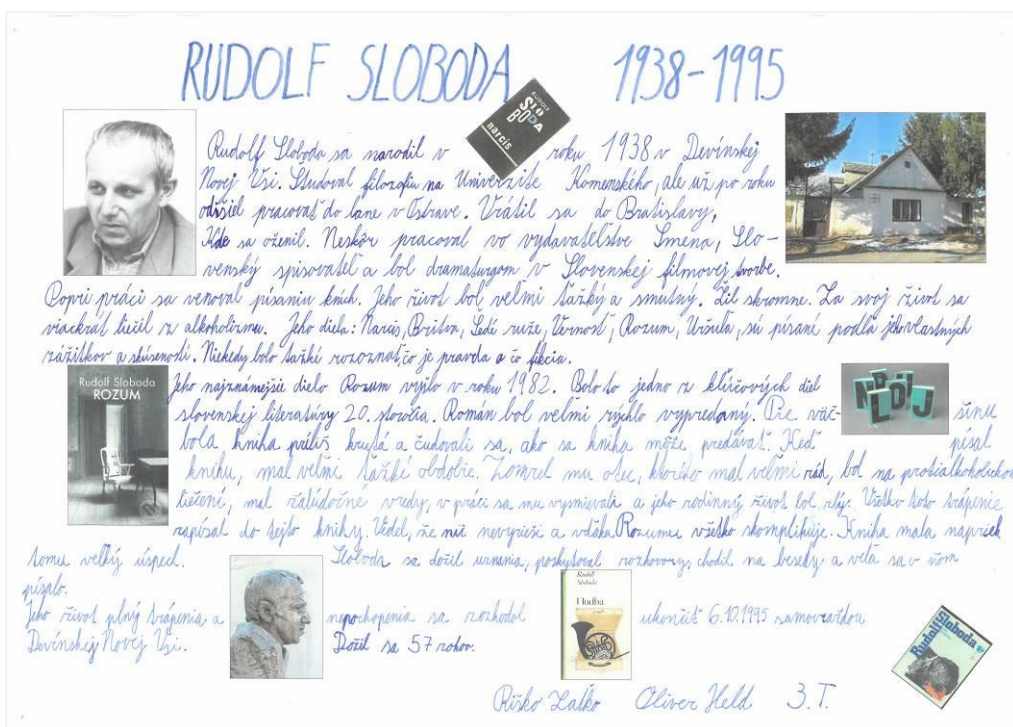 RUDOLF SLOBODA 1938-1995
RUDOLF
SLO
BO
DA
narcis
Rudolf Sloboda sa narodil v roku 1938 v Devínskej
Novej Vsi. Študoval filozofiu na Univerzite Komenského, ale už po roku
odišiel pracovať do bane v Ostrave. Vrátil sa do Bratislavy,
kde sa oženil. Neskôr pracoval vo vydavateľstve Smena, Slo-
venský spisovateľ a bol dramaturgom v Slovenskej filmovej tvorbe.
Popri práci sa venoval písaniu kníh. Jeho život bol veľmi ťažký a smutný. Žil skromne. Za svoj život sa
viackrát liečil z alkoholizmu. Jeho diela: Narcis, Britva, Šedé ruže, Vernosť, Rozum, Uršuľa, sú písané podľa jeho vlastných
zážitkov a skúseností. Niekedy bolo ťažké rozoznať, čo je pravda a čo fikcia.
Rudolf Sloboda
ROZUM
Jeho najznámejšie dielo Rozum vyšlo v roku 1982. Bolo to jedno z kľúčových diel
slovenskej literatúry 20. storočia. Román bol veľmi rýchlo vypredaný. Pre väč- šinu
bola kniha príliš krutá a čudovali sa, ako sa kniha môže predávať. Keď písal
knihu, mal veľmi ťažké obdobie. Zomrel mu otec, ktorého mal veľmi rád, bol na protialkoholickom
liečení, mal žalúdočné vredy, v práci sa mu vysmievali a jeho rodinný život bol zlý. Všetko toto trápenie
zapísal do tejto knihy. Vedel, že nič nevyrieši a vďaka Rozumu všetko skomplikuje. Kniha mala napriek
tomu veľký úspech. Sloboda sa dočil uznania, poskytoval rozhovory, chodil na besedy a veľa sa v ňom
písalo.
Jeho život plný trápenia a nepochopenia sa rozhodol ukončiť 6.10.1995 samovraždou
Devínskej Novej Vsi. Dožil sa 57 rokov.
Rudolf
Sloboda
Hudba
Rudolf
Sloboda
Riško Zaťko Oliver Held 3.T.